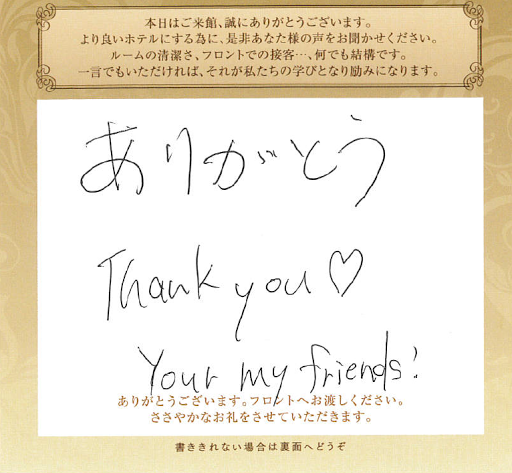 本日はご来館、誠にありがとうございます。
より良いホテルにする為に、是非あなた様の声をお聞かせください。
ルームの清潔さ、フロントでの接客…、何でも結構です。
一言でもいただければ、それが私たちの学びとなり励みになります。
ありがとう
Thank you♡
Your my friends!
ありがとうございます。フロントへお渡しください。
ささやかなお礼をさせていただきます。
書ききれない場合は裏面へどうぞ